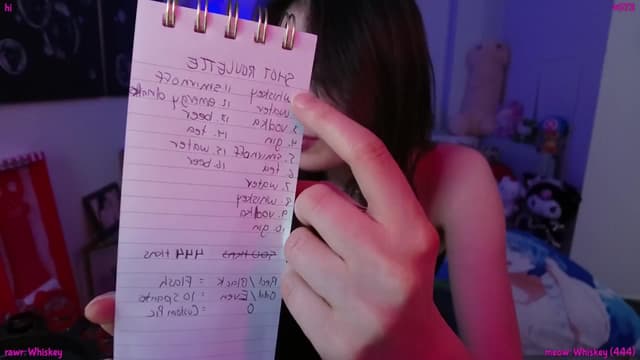 hi
SHOT ROULETTE
1. whiskey 11 smirnoff
2. water 12 energy drink
3. vodka 13 beer
4. gin 14. tea
5. smirnoff 15. water
6 tea 16. beer
7. water
8. whiskey
9. vodka
10. gin
500 tkns 444 tkns
Red/Black = Flash
Odd/Even = 10 spanks
0 = Custom Pic
rawr: Whiskey
meow: Whiskey (444)